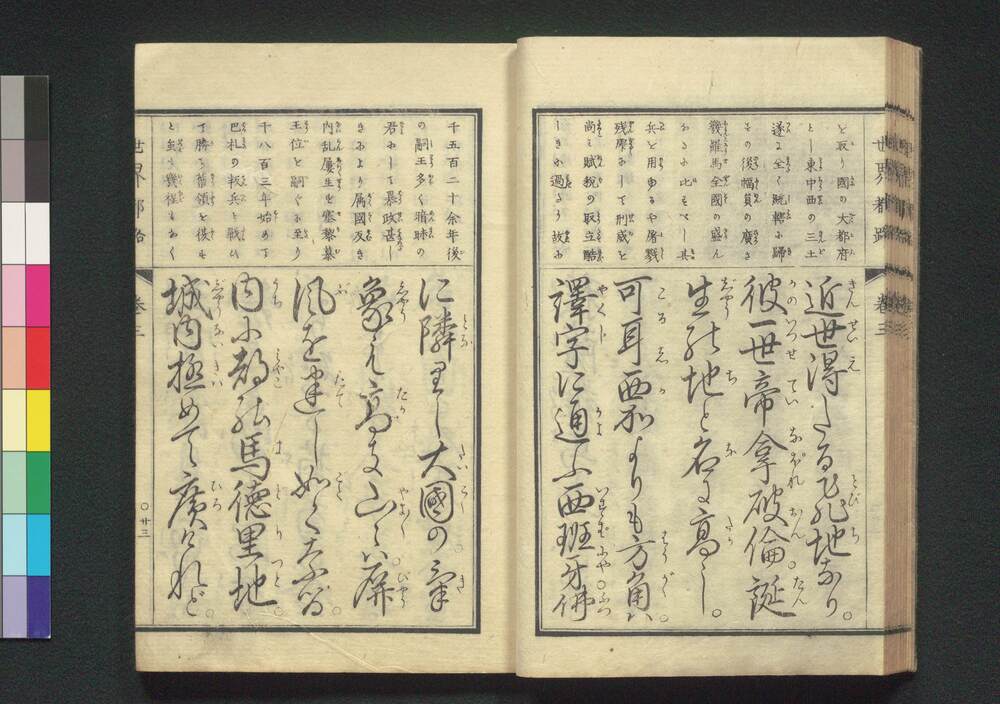 を取り國の大都府
とし東中西の三土
遂に全く既轄に歸
その後幅員の廣き
幾羅馬全國の盛ん
なるに比すべし其
兵を用ゆるや屠戮
残虜にして刑威を
尚ミ賦税の取立酷
しきに過るゟ故に
近世得たる飛地なり。
彼一世帝拿破倫。誕
生の地と名も高し。
可耳西加よりも方角ハ
譯字に通ふ西班牙。佛
世界都路
卷三
千五百二十余年後
の嗣王多く暗昧の
君にして暴政甚し
きにより属國及き
内乱屢生を塞黎慕
王位を嗣ぐに至り
千八百三年始めて
巴札の叛兵と戦ひ
て勝ち舊領を復も
と
に隣りし大國の。氣
象も高き山々ハ。屏
風を建し如くなる。
内に都能馬德里。地
城内極めて廣けれど。
世界都路
卷三
〇廿三